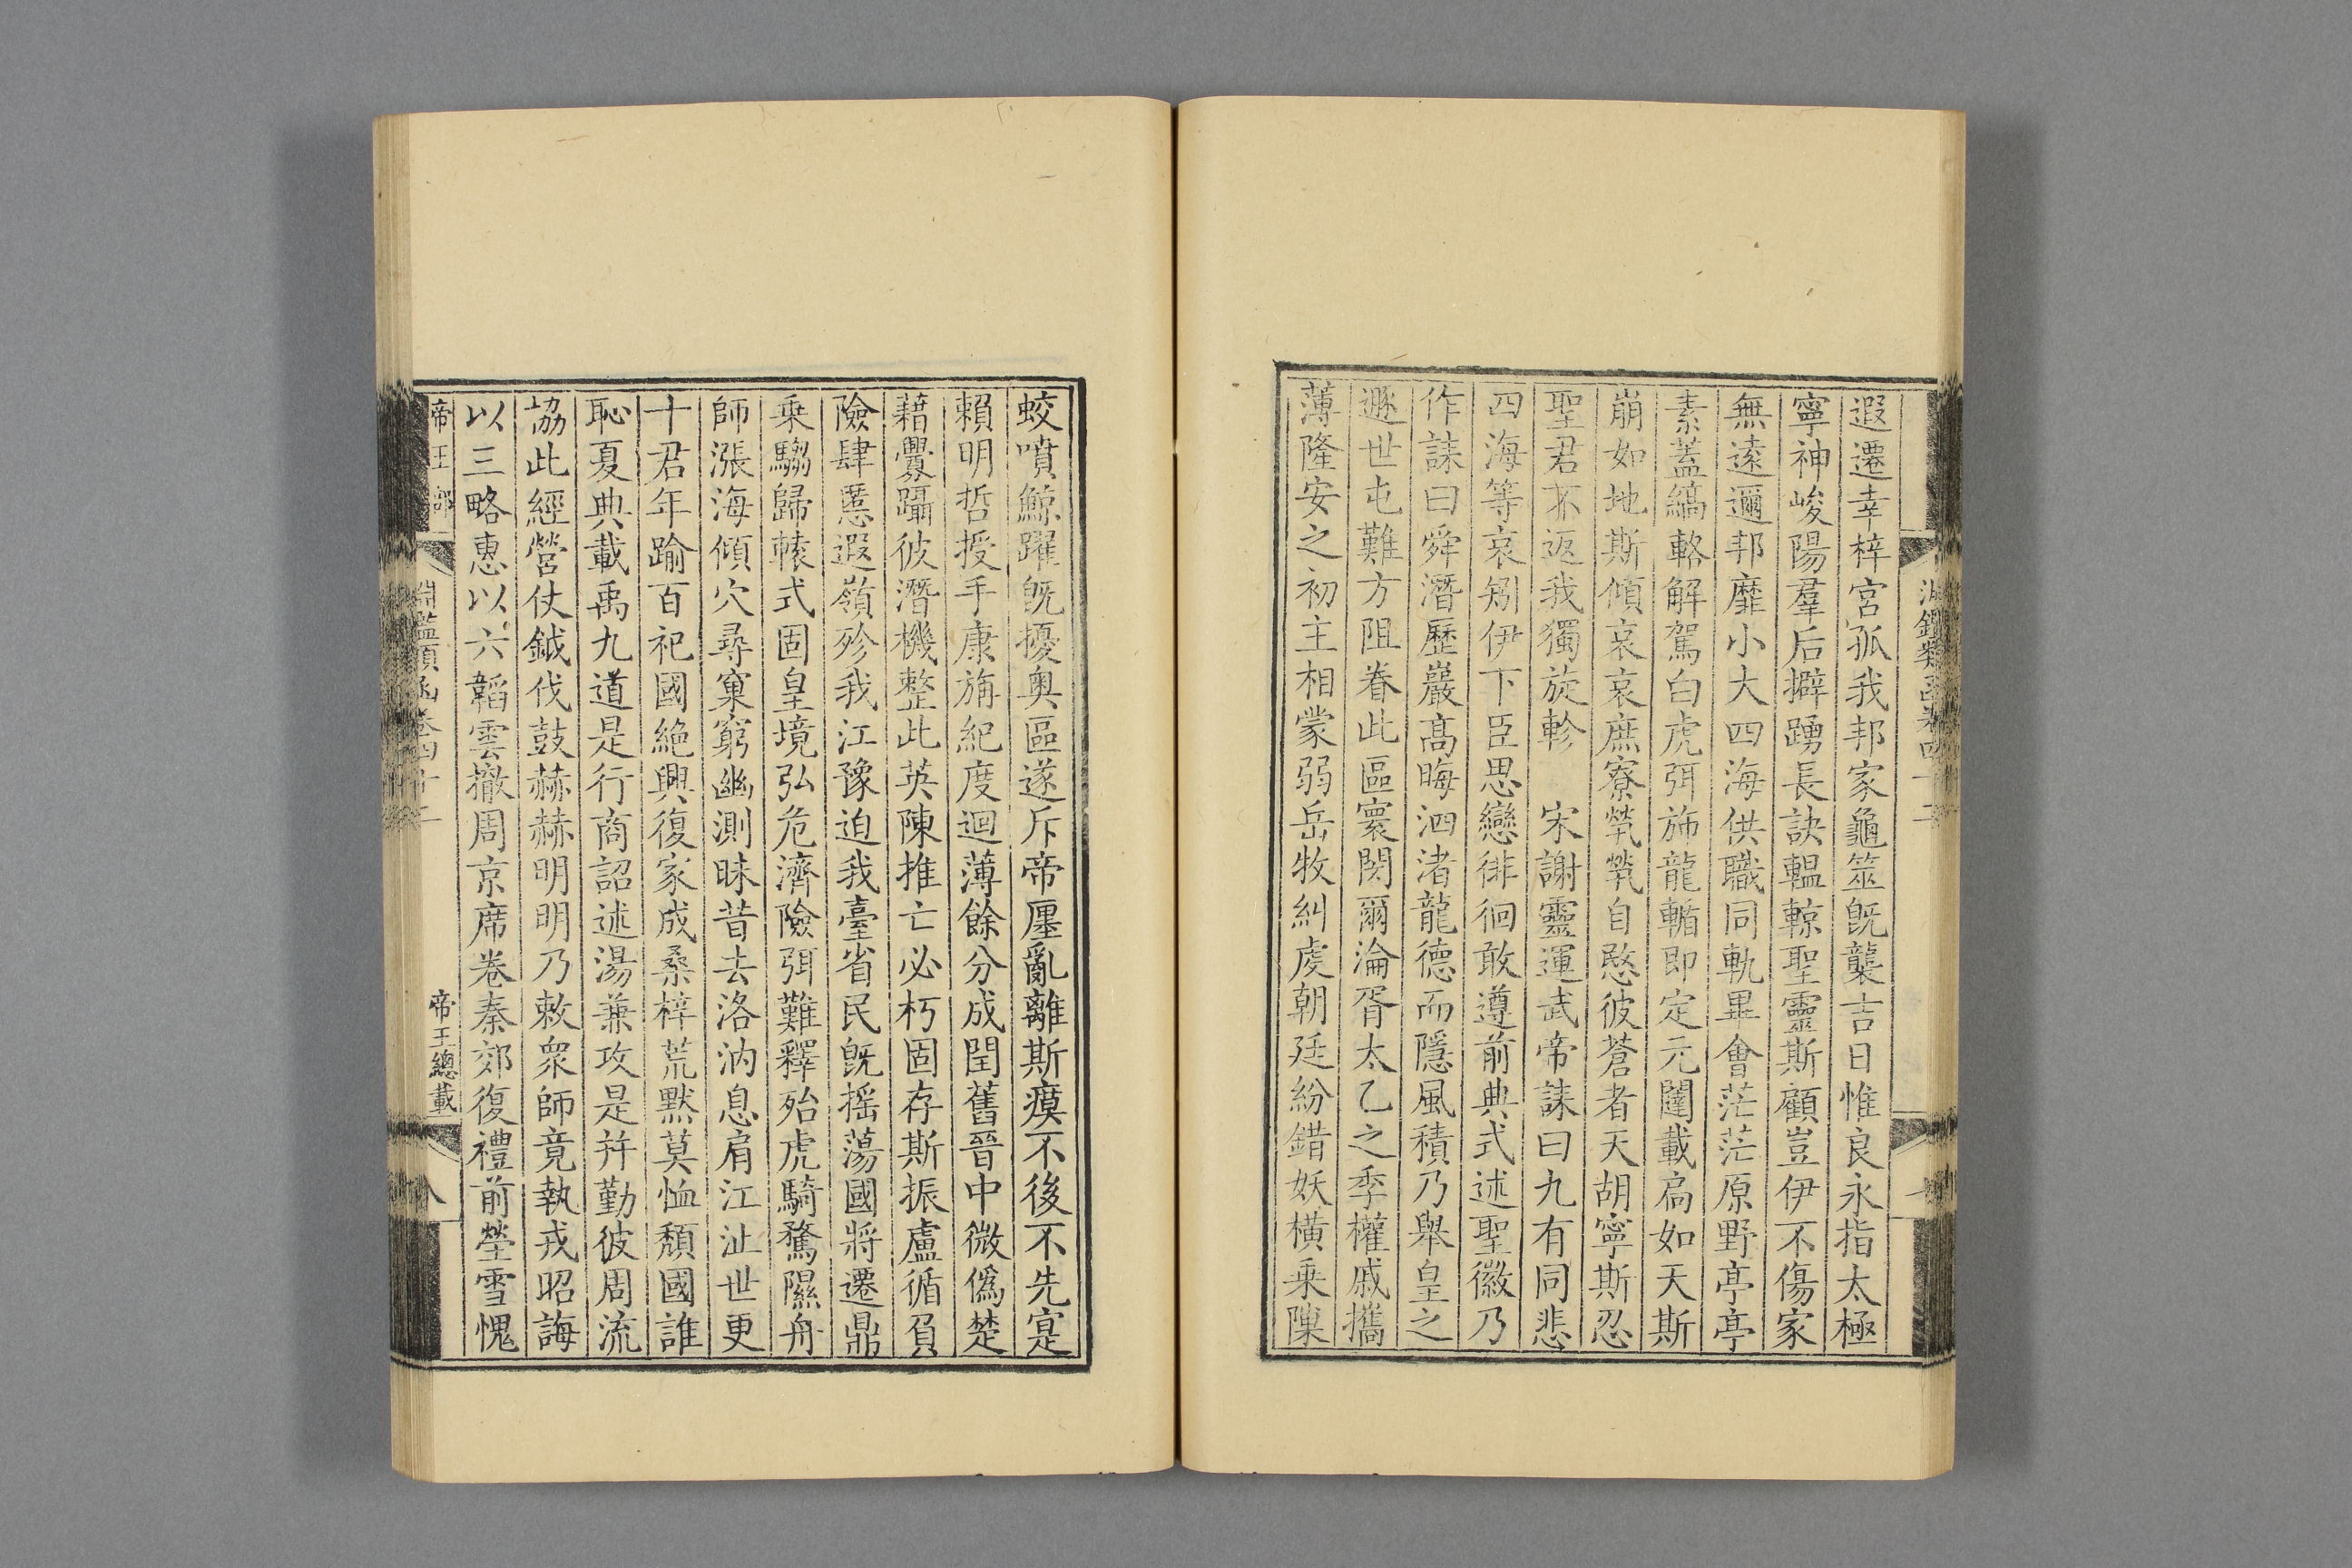 遐遷幸梓宮孤我邦家龜筮旣襲吉日惟良永指太極
寧神峻陽羣后擗踴長訣轀輬聖靈斯顧豈伊不傷家
無遠邇邦靡小大四海供職同軌畢會茫茫原野亭亭
素蓋縞輅解駕白虎弭旆龍輴即定元闥載扃如天斯
崩如地斯傾哀哀庶寮煢煢自愍彼蒼者天胡寧斯忍
聖君不返我獨旋軫 宋謝靈運武帝誄曰九有同悲
四海等哀矧伊下臣思戀徘徊敢遵前典式述聖徽乃
作誄曰舜潛歷巖髙晦泗渚龍德而隱風積乃舉皇之
遯世屯難方阻眷此區寰閔爾淪胥太乙之季權戚攜
薄隆安之初主相蒙弱岳牧糾虔朝廷紛錯妖橫乘隟
蛟噴鯨躍旣擾奥區遂斥帝廛亂離斯瘼不後不先寔
賴明哲授手康旃紀度迴薄餘分成閏舊晉中微僞楚
藉釁躡彼潛機整此英陳推亡必朽固存斯振盧循負
險肆慝遐嶺殄我江豫迫我臺省民旣摇蕩國將遷鼎
乘騶歸轅式固皇境弘危濟險弭難釋殆虎騎騖隰舟
師漲海傾穴尋窠窮幽測昧昔去洛汭息肩江沚世更
十君年踰百祀國絶興復家成桑梓荒黙莫恤頽國誰
恥夏典載禹九道是行商詔述湯兼攻是并勤彼周流
協此經營仗鉞伐鼓赫赫明明乃敕衆師竟執戎昭誨
以三略惠以六韜雲撤周京席卷秦郊復禮前塋雪愧
帝王部
淵鑑類函卷四十二
帝王總載
八